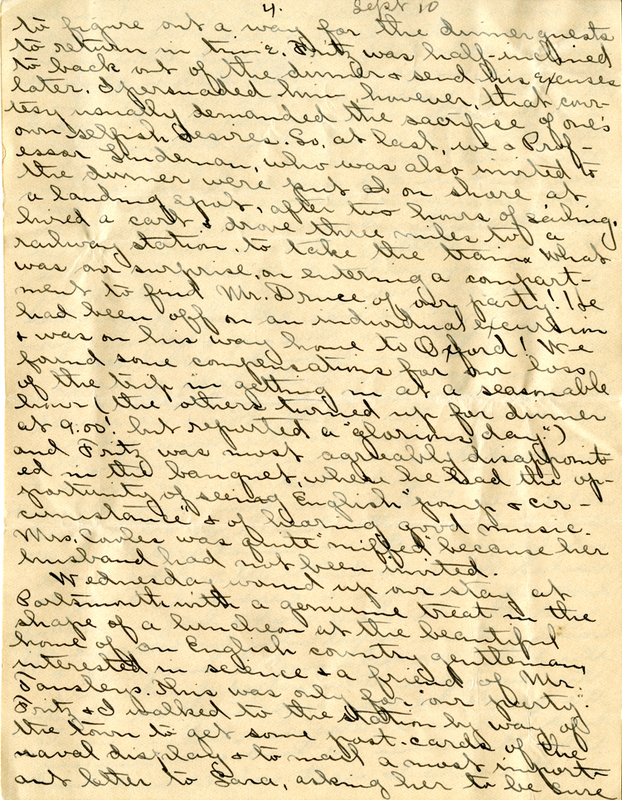 4. Sept 10
to figure out a way for the dinner guests
to return in time. Fritz was half-inclined
to back out of the dinner & send his excuses
later. I persuaded him however, that cour-
tesy usually demanded the sacrifice of one's
own selfish desires. So, at last, we & Prof-
essor Lindeman, who was also invited to
the dinner were put on shore at
a landing spot, after two hours of sailing,
hired a cart & drove three miles to a
railway station, to take the train. What
was our surprise, on entering a compart-
ment to find Mr. Druce of our party! He
had been off on an individual excursion
& was on his way home to Oxford! We
found some compensations for our loss
of the trip in getting in at a seasonable
hour (the others turned up for dinner
at 9.00! but reported a "glorious day")
and Fritz was most agreeably disappoint-
ed in the banquet, where he had the op-
portunity of seeing English "pomp & cir-
cumstance" & of hearing good music.
Mrs. Cowles was quite "miffed" because her
husband had not been invited.
Wednesday wound up our stay at
Portsmouth with a genuine treat in the
shape of a luncheon at the beautiful
home of an English country gentleman,
interested in science & a friend of Mr.
Tansleys. This was only for "our party."
Fritz & I walked to the station by way of
the town to get some post-cards of the
naval display & to mail a most import-
ant letter to Sara, asking her to be sure